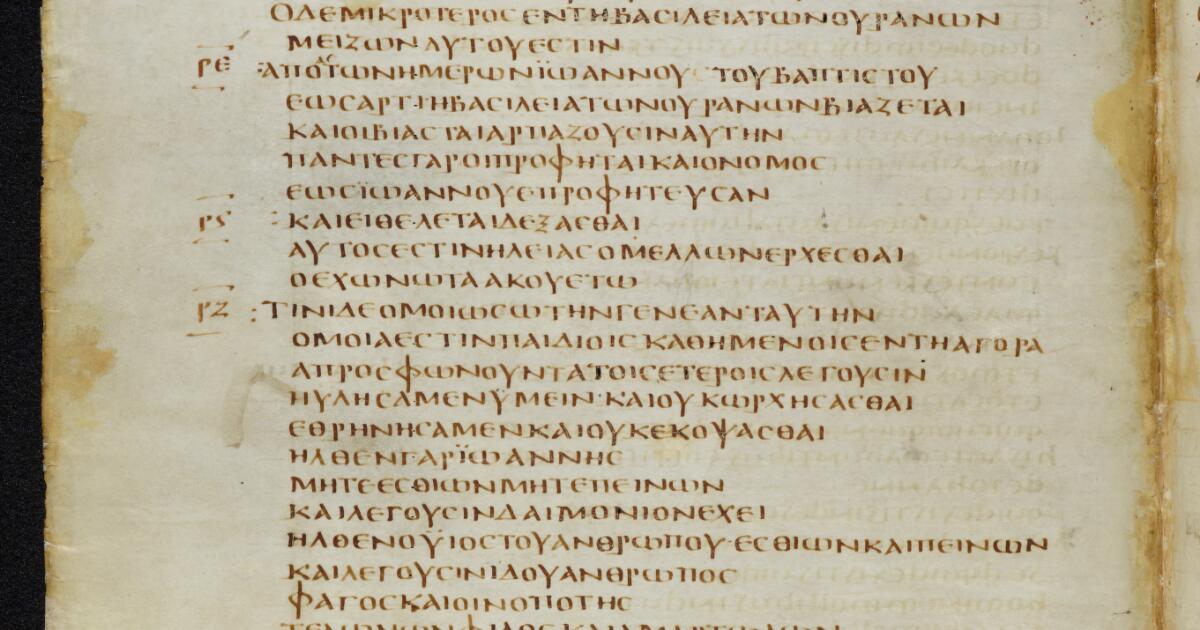 ΟΔΕΜΙΚΡΟΤΕΡΟϹΕΝΤΗΒΑϹΙΛΕΙΑΤΩΝΟΥΡΑΝΩΝ
ΜΕΙΖΩΝΑΥΤΟΥΕϹΤΙΝ
ΡΕ ΑΠΟΤΩΝΗΜΕΡΩΝΪΩΑΝΝΟΥ ΤΟΥΒΑΠΤΙϹΤΟΥ
ΕΩϹΑΡΤΙΗΒΑϹΙΛΕΙΑΤΩΝΟΥΡΑΝΩΝΒΙΑΖΕΤΑΙ
ΚΑΙΟΙΒΙΑϹΤΑΙΑΡΠΑΖΟΥϹΙΝΑΥΤΗΝ
ΠΑΝΤΕϹΓΑΡΟΙΠΡΟΦΗΤΑΙΚΑΙΟΝΟΜΟϹ
ΕΩϹΪΩΑΝΝΟΥΕΠΡΟΦΗΤΕΥϹΑΝ
ΡϚ : ΚΑΙΕΙΘΕΛΕΤΑΙΔΕΞΑϹΘΑΙ
ΑΥΤΟϹΕϹΤΙΝΗΛΕΙΑϹΟΜΕΛΛΩΝΕΡΧΕϹΘΑΙ
ΟΕΧΩΝΩΤΑΑΚΟΥΕΤΩ
ΡΖ : ΤΙΝΙΔΕΟΜΟΙΩϹΩΤΗΝΓΕΝΕΑΝΤΑΥΤΗΝ
ΟΜΟΙΑΕϹΤΙΝΠΑΙΔΙΟΙϹΚΑΘΗΜΕΝΟΙϹΕΝΤΗΑΓΟΡΑ
ΑΠΡΟϹΦΩΝΟΥΝΤΑΤΟΙϹΕΤΕΡΟΙϹΛΕΓΟΥϹΙΝ
ΗΥΛΗϹΑΜΕΝΫΜΕΙΝ·ΚΑΙΟΥΚΩΡΧΗϹΑϹΘΑΙ
ΕΘΡΗΝΗϹΑΜΕΝΚΑΙΟΥΚΕΚΟΨΑϹΘΑΙ
ΗΛΘΕΝΓΑΡΪΩΑΝΝΗϹ
ΜΗΤΕΕϹΘΙΩΝΜΗΤΕΠΕΙΝΩΝ
ΚΑΙΛΕΓΟΥϹΙΝΔΑΙΜΟΝΙΟΝΕΧΕΙ
ΗΛΘΕΝΟΫΙΟϹΤΟΥΑΝΘΡΩΠΟΥ·ΕϹΘΙΩΝΚΑΙΠΕΙΝΩΝ
ΚΑΙΛΕΓΟΥϹΙΝΙΔΟΥΑΝΘΡΩΠΟϹ
ΦΑΓΟϹΚΑΙΟΙΝΟΠΟΤΗϹ